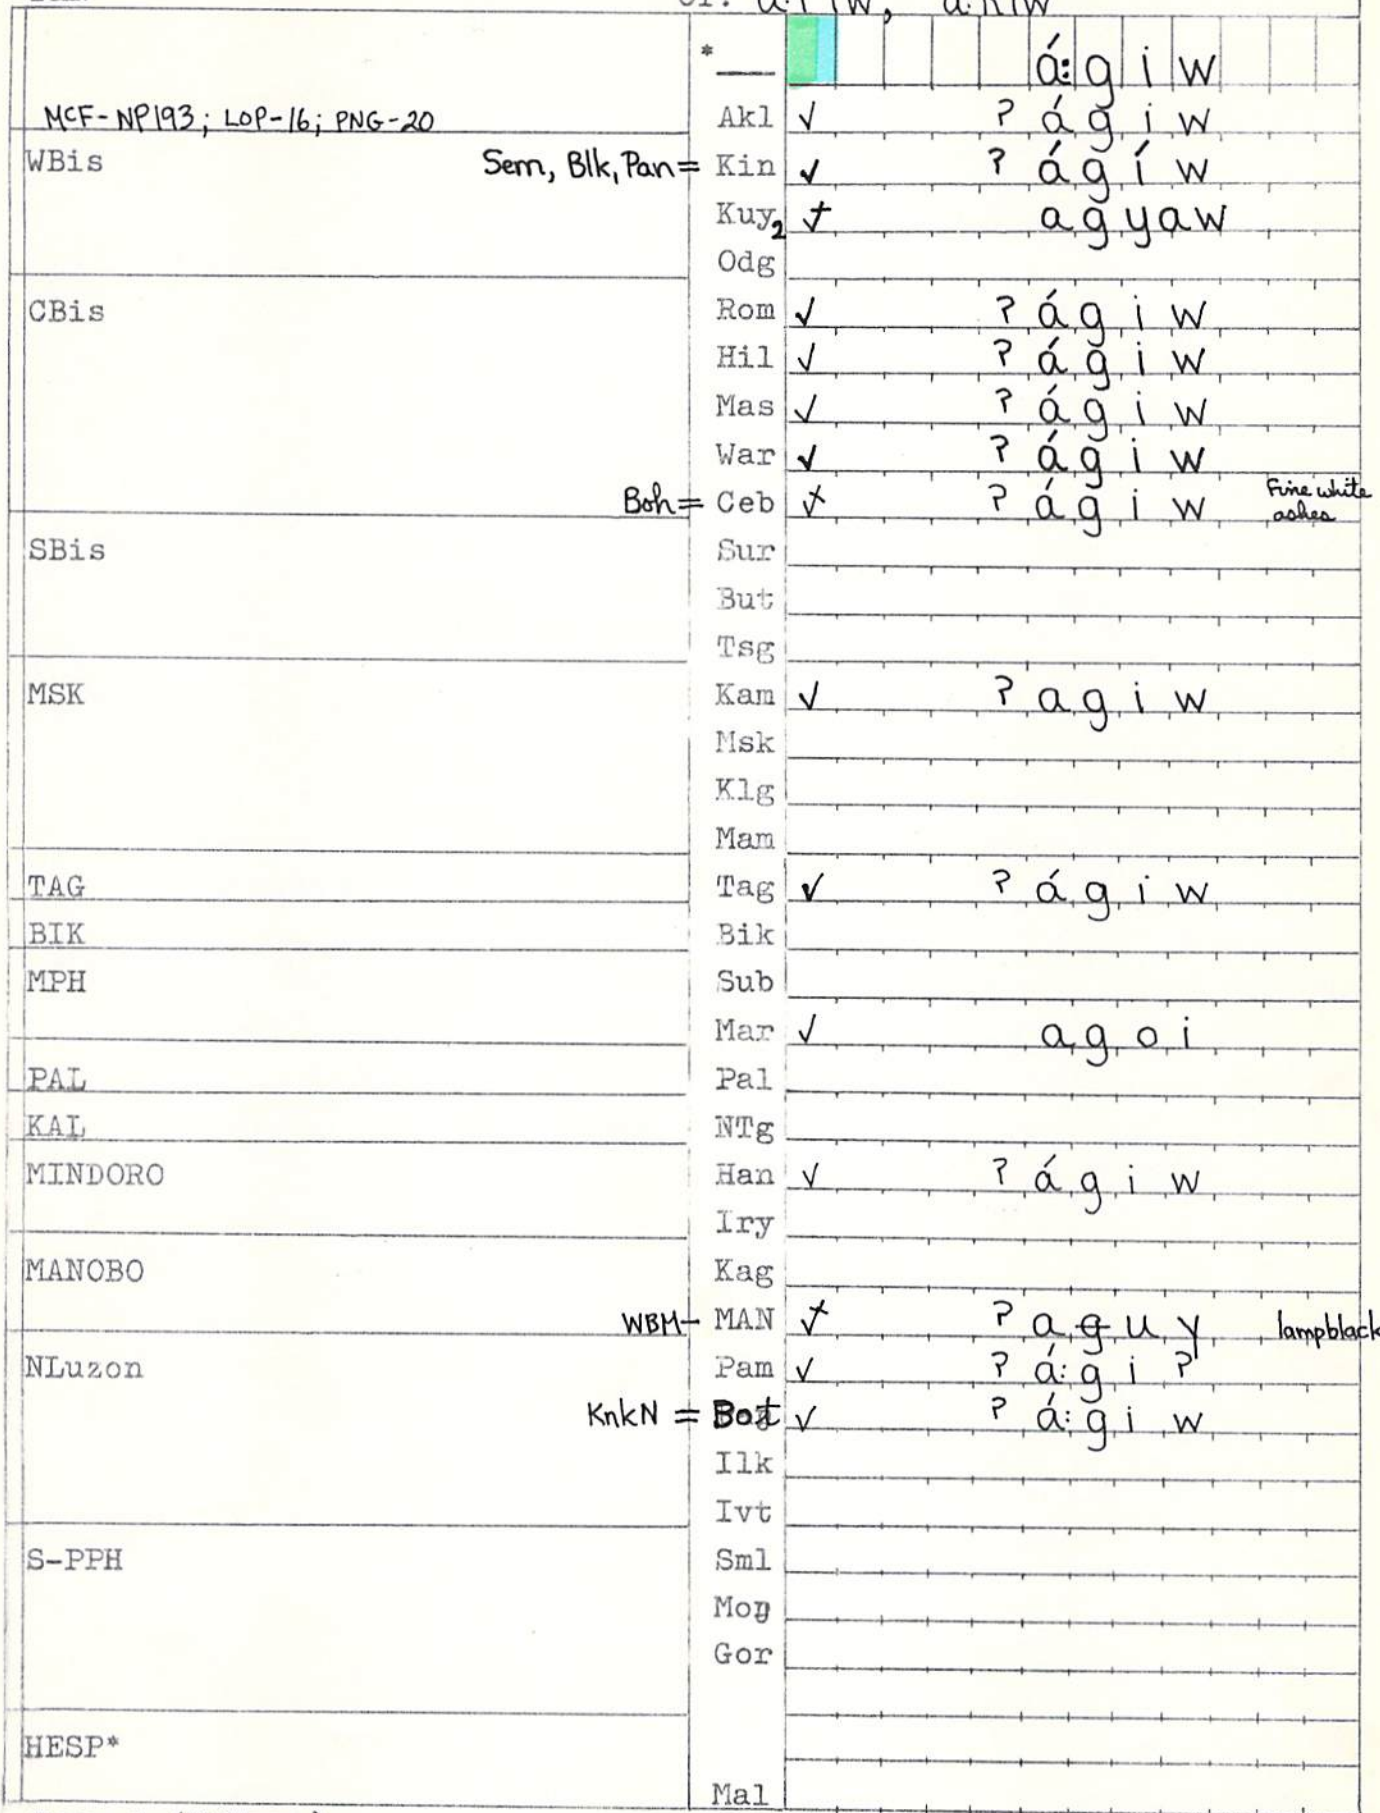 * á:giw
MCF-NP193; LOP-16; PNG-20 Akl ✓ ʔágiw
WBis Sem, Blk, Pan = Kin ✓ ʔágíw
Kuy2 agyaw
Odg
CBis Rom ✓ ʔágiw
Hil ✓ ʔágiw
Mas ✓ ʔágiw
War ✓ ʔágiw
Boh = Ceb ʔágiw Fine white ashes
SBis Sur
But
Tsg
MSK Kam ✓ ʔagiw
Msk
Klg
Mam
TAG Tag ✓ ʔágiw
BIK Bik
MPH Sub
Mar ✓ agoi
PAL Pal
KAL NTg
MINDORO Han ✓ ʔágiw
Iry
MANOBO Kag
WBM- MAN ʔaguy lampblack
NLuzon Pam ✓ ʔá:giʔ
KnkN = Bot ✓ ʔá:giw
Ilk
Ivt
S-PPH Sml
Gor
HESP*
Mal